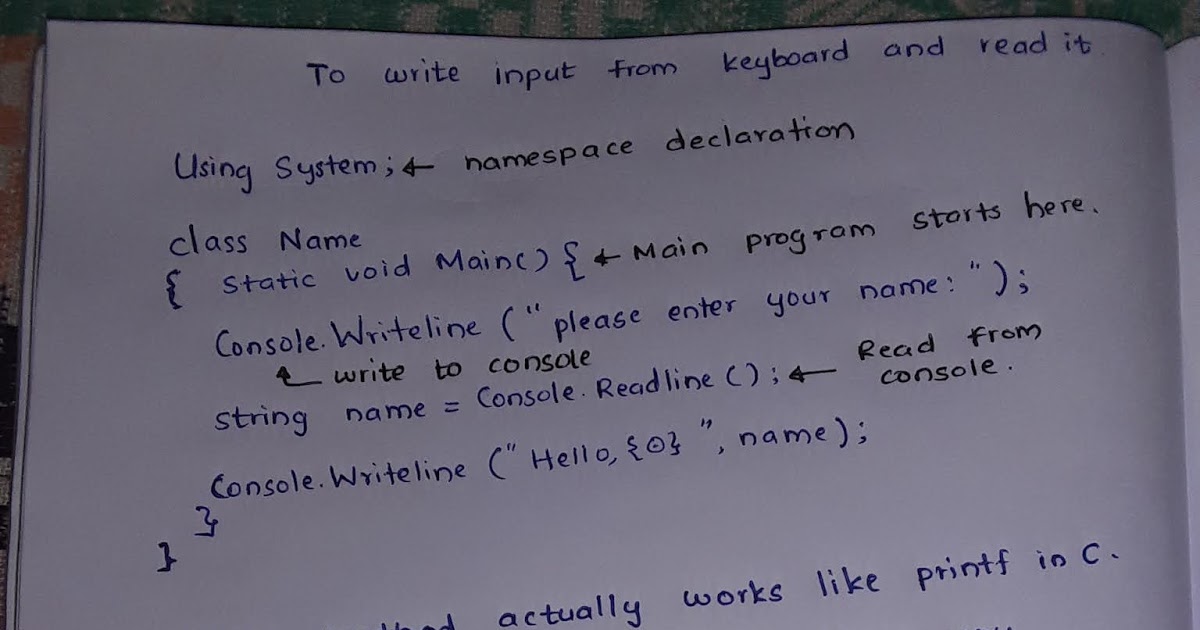 To write input from keyboard and read it
Using System; ← namespace declaration
class Name
{ Static void Main() { ← Main program starts here.
Console.Writeline ("please enter your name: ");
write to console
string name = Console.Readline(); ← Read from console.
Console.Writeline ("Hello, {0} ", name);
}
}
actually works like printf in C.